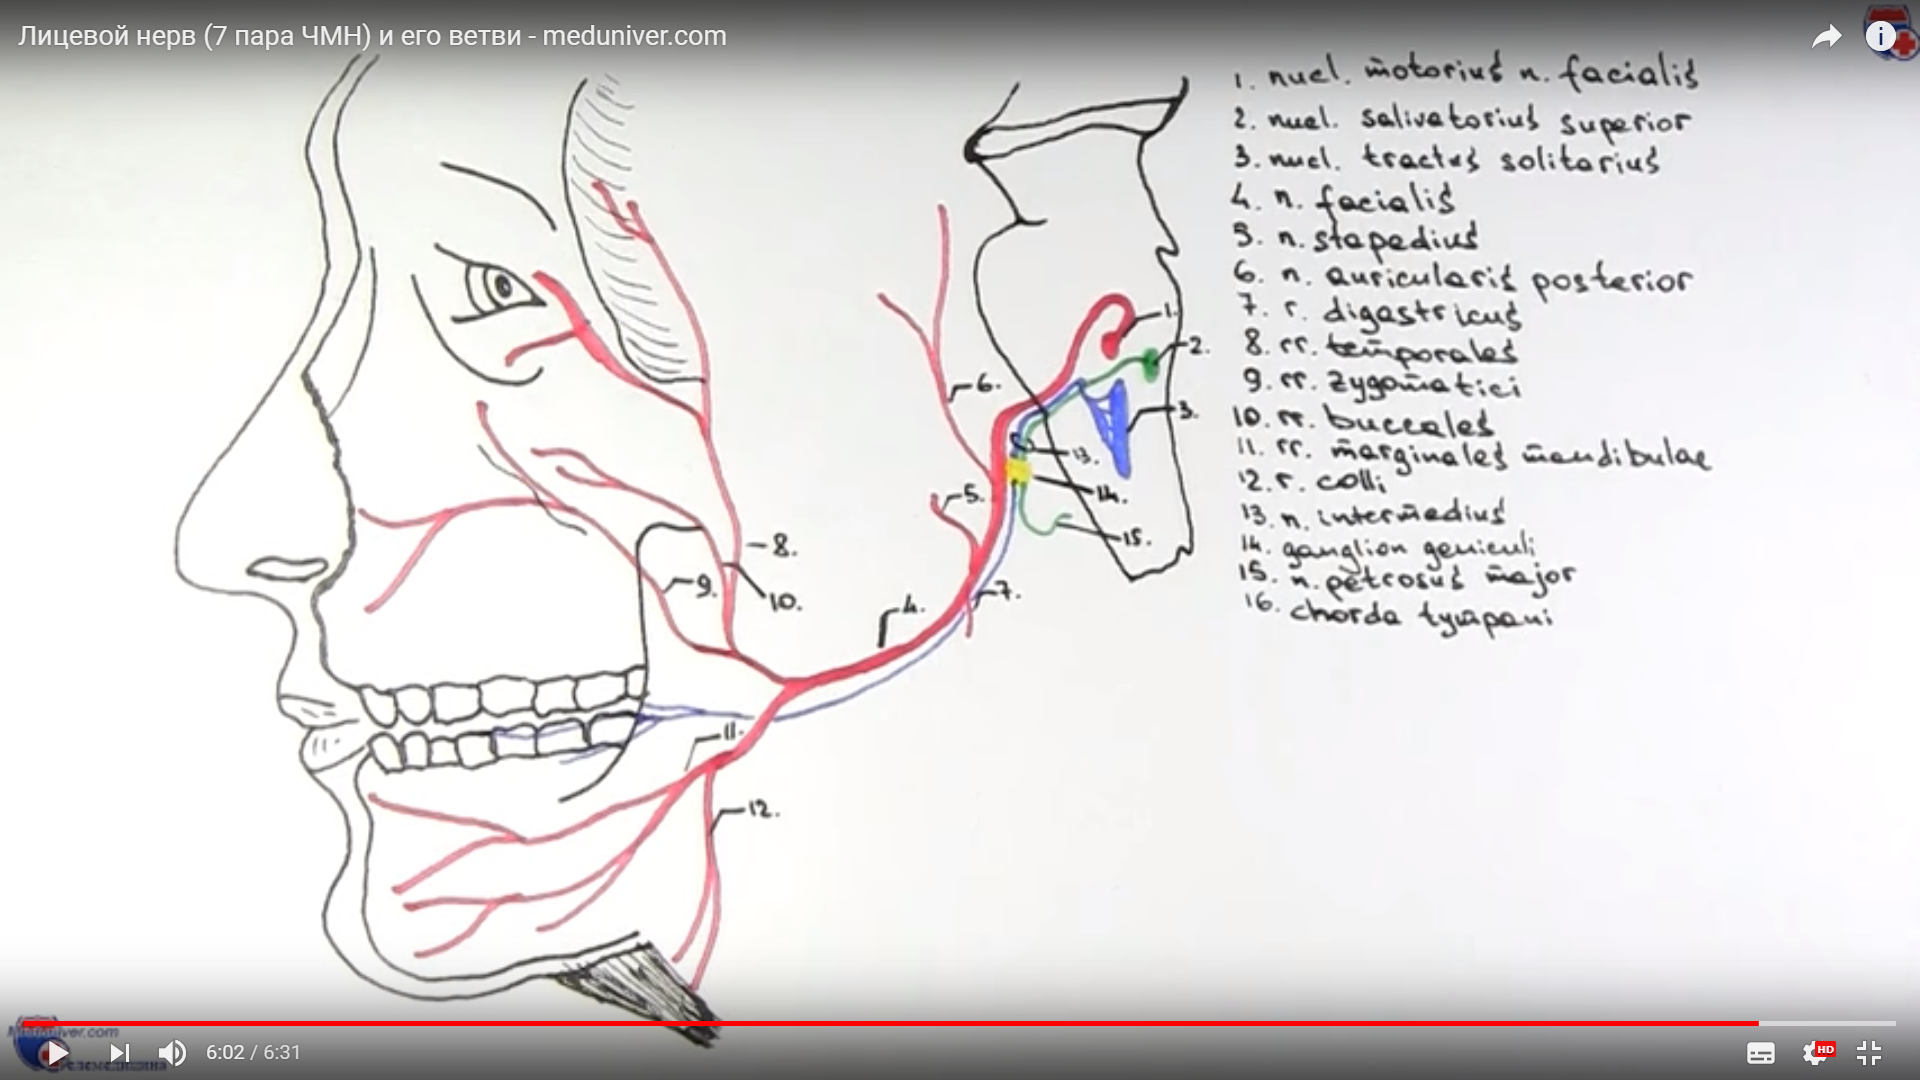 Лицевой нерв (7 пара ЧМН) и его ветви - meduniver.com
1. nucl. motorius n. facialis
2. nucl. salivatorius superior
3. nucl. tractus solitarius
4. n. facialis
5. n. stapedius
6. n. auricularis posterior
7. r. digastricus
8. rr. temporales
9. rr. zygomatici
10. rr. buccales
11. rr. marginales mandibulae
12. r. colli
13. n. intermedius
14. ganglion geniculi
15. n. petrosus major
16. chorda tympani
1.
2.
3.
6.
13.
14.
5.
15.
8.
9.
10.
7.
4.
11.
12.
Meduniver.com
6:02 / 6:31
HD